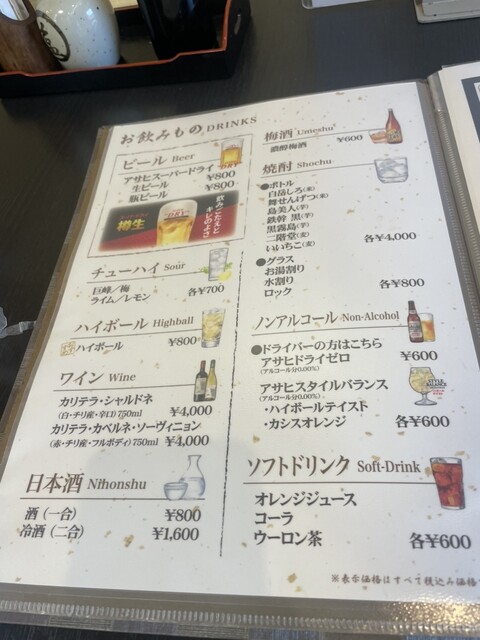 お飲みもの DRINKS
ビール Beer
アサヒスーパードライ
生ビール ¥800
瓶ビール ¥800
樽生
飲みごたえと
キレのよさ
チューハイ Sour
巨峰/梅
ライム/レモン 各¥700
ハイボール Highball
ハイボール ¥800
ワイン Wine
カリテラ・シャルドネ
(白・チリ産・辛口)750ml ¥4,000
カリテラ・カベルネ・ソーヴィニョン
(赤・チリ産・フルボディ)750ml ¥4,000
日本酒 Nihonshu
酒(一合) ¥800
冷酒(二合) ¥1,600
梅酒 Umeshu
濃醇梅酒 ¥600
焼酎 Shochu
●ボトル
白岳しろ(米)
舞せんげつ(米)
島美人(芋)
鉄幹 黒(芋)
黒霧島(芋)
二階堂(麦)
いいちこ(麦) 各¥4,000
●グラス
お湯割り
水割り
ロック 各¥800
ノンアルコール Non-Alcohol
●ドライバーの方はこちら
アサヒドライゼロ ¥600
(アルコール分0.00%)
アサヒスタイルバランス
(アルコール分0.00%)
・ハイボールテイスト
・カシスオレンジ 各¥600
ソフトドリンク Soft-Drink
オレンジジュース
コーラ
ウーロン茶 各¥600
※表示価格はすべて税込み価格